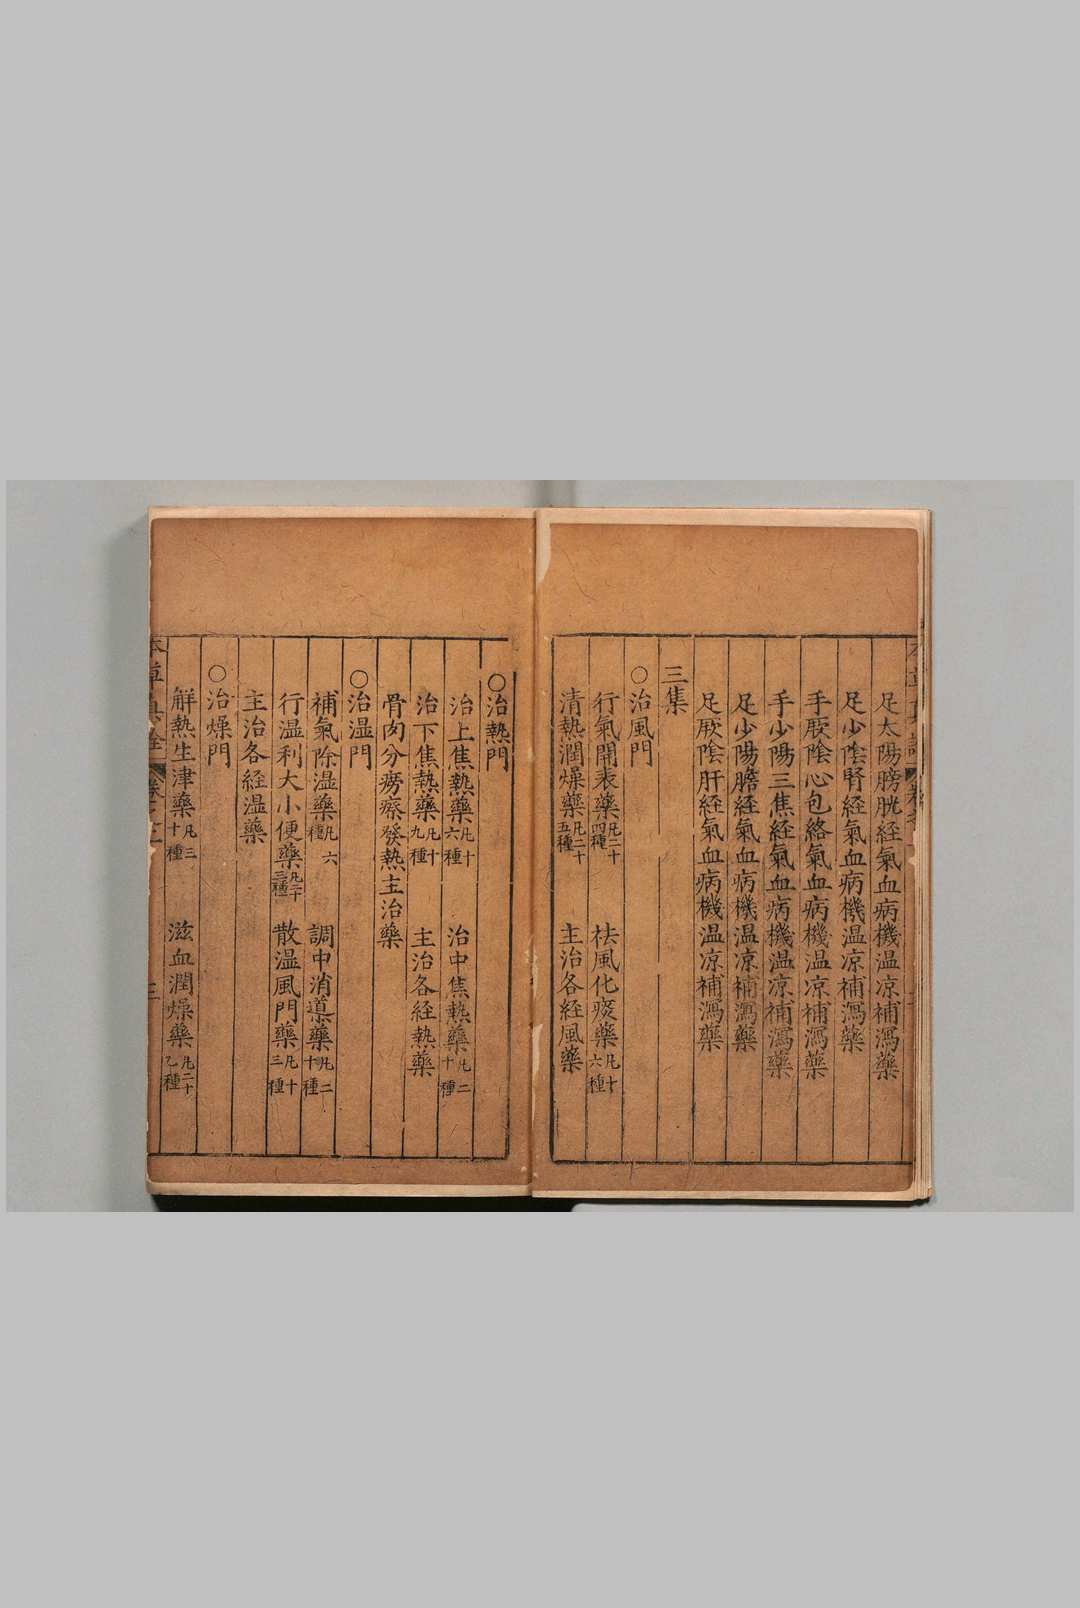 足太陽膀胱経氣血病機温凉補瀉藥
足少陰腎経氣血病機温凉補瀉藥
手厥陰心包絡氣血病機温凉補瀉藥
手少陽三焦経氣血病機温凉補瀉藥
足少陽膽経氣血病機温凉補瀉藥
足厥陰肝経氣血病機温凉補瀉藥
三集
○治風門
行氣開表藥凡二十四種 祛風化痰藥凡十六種
清熱潤燥藥凡二十五種 主治各経風藥
○治熱門
治上焦熱藥凡十六種 治中焦熱藥凡二十種
治下焦熱藥凡十九種 主治各経熱藥
骨肉分癆瘵發熱主治藥
○治湿門
補氣除湿藥凡六種 調中消導藥凡二十種
行湿利大小便藥凡二十三種 散湿風門藥凡十三種
主治各経湿藥
○治燥門
解熱生津藥凡三十種 滋血潤燥藥凡二十乙種
本草真詮 卷之 三